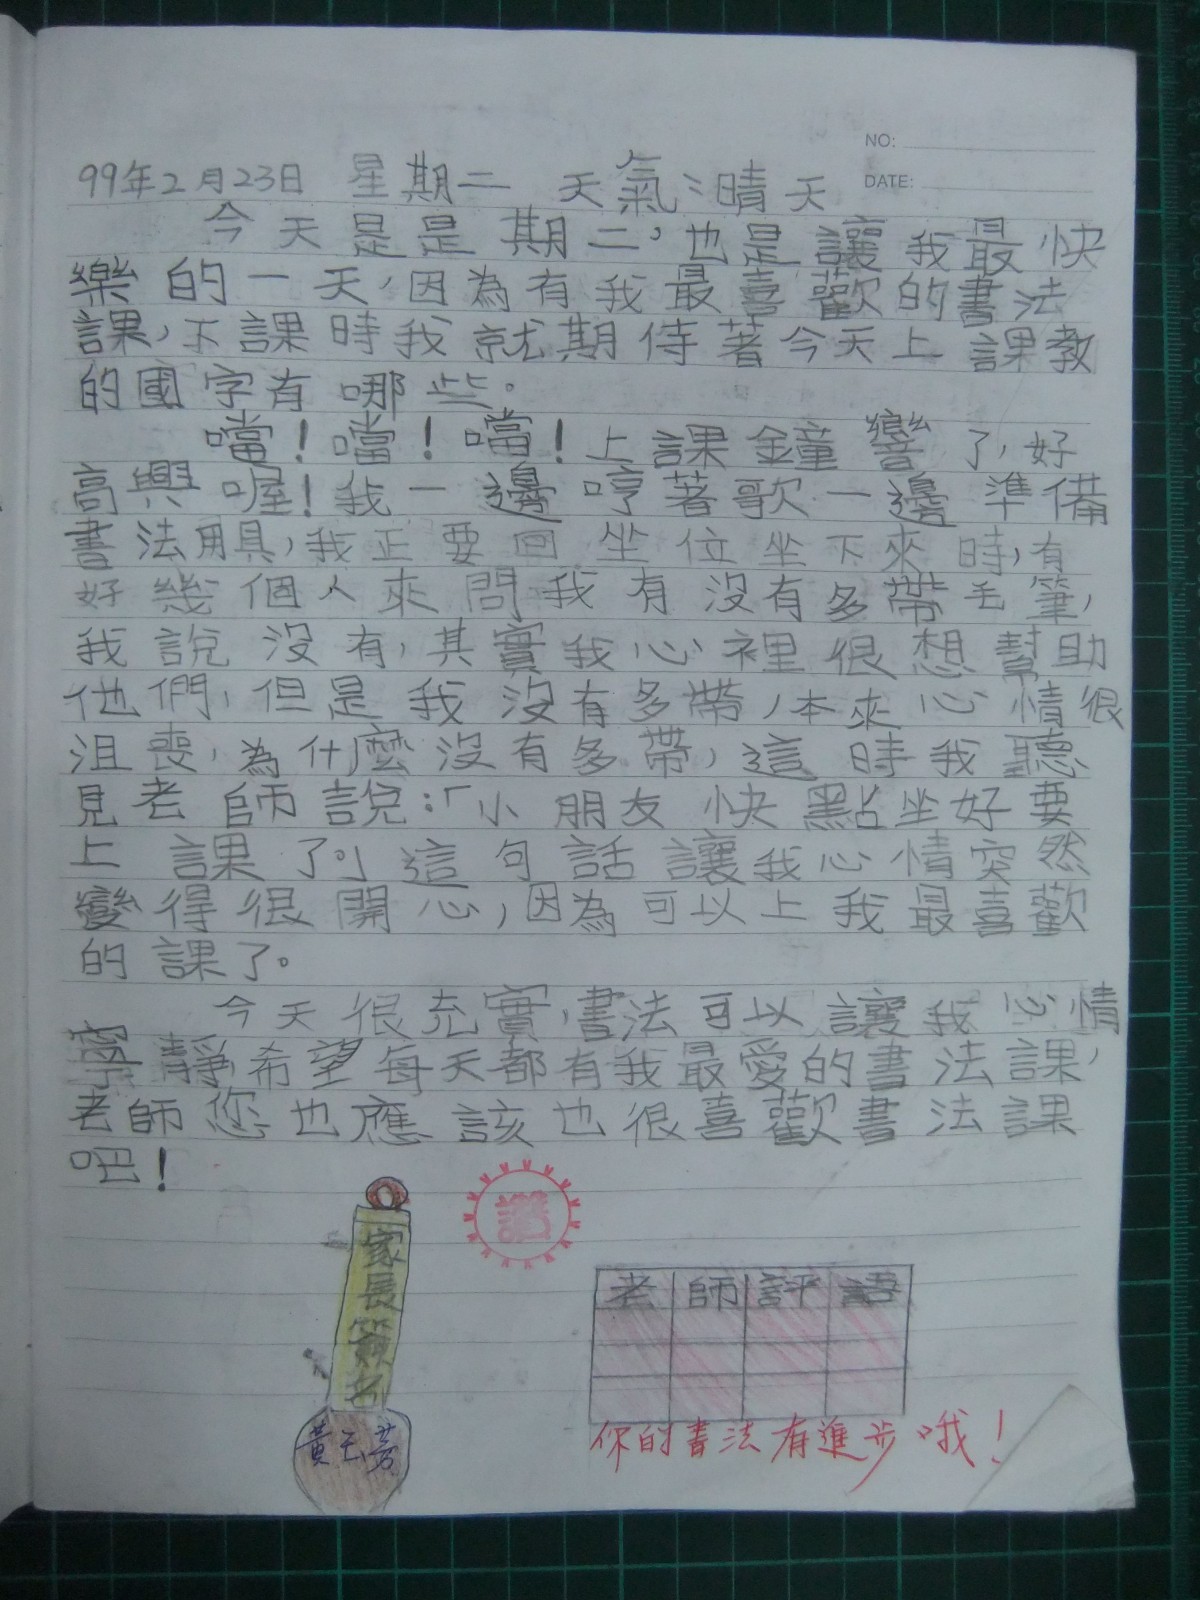 NO:
DATE:
99年2月23日 星期二 天氣:晴天
今天是是期二,也是讓我最快
樂的一天,因為有我最喜歡的書法
課,下課時我就期待著今天上課教
的國字有哪些。
噹!噹!噹!上課鐘響了,好
高興喔!我一邊哼著歌一邊準備
書法用具,我正要回坐位坐下來時,有
好幾個人來問我有沒有多帶毛筆,
我說沒有,其實我心裡很想幫助
他們,但是我沒有多帶,本來心情很
沮喪,為什麼沒有多帶,這時我聽
見老師說:「小朋友快點坐好要
上課了。」這句話讓我心情突然
變得很開心,因為可以上我最喜歡
的課了。
今天很充實,書法可以讓我心情
寧靜希望每天都有我最愛的書法課,
老師您也應該也很喜歡書法課
吧!
讚
家長簽名
老師評語
黃玉芳
你的書法有進步哦!